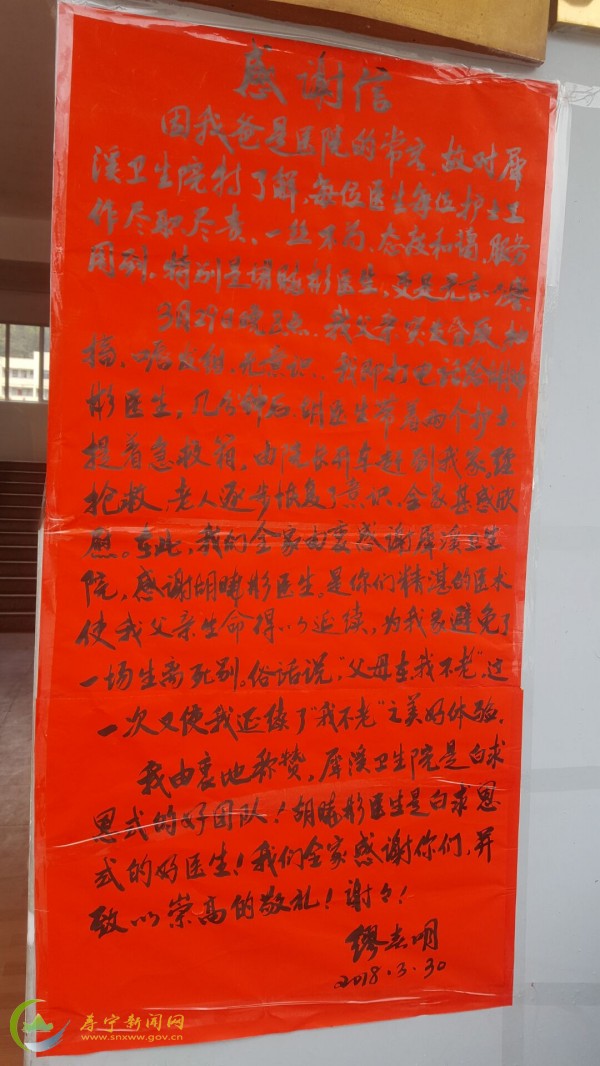 感谢信
因我爸是医院的常客，故对犀
溪卫生院特了解，每位医生每位护士工
作尽职尽责、一丝不苟、态度和蔼、服务
周到，特别是胡晓彬医生，更是无言
3月29日晚三点，我父亲突发昏厥抽
搐、嘴发绀、无意识，我即打电话给胡晓
彬医生，几分钟后，胡医生带着两个护士，
提着急救箱，由院长开车赶到我家。经
抢救，老人逐步恢复了意识，全家甚感欣
慰。在此，我们全家由衷感谢犀溪卫生
院，感谢胡晓彬医生。是你们精湛的医术
使我父亲生命得以延续，为我家避免了
一场生离死别。俗话说，“父母在，我不老”，这
一次又使我延续了“我不老”之美好体验。
我由衷地称赞，犀溪卫生院是白求
恩式的好团队！胡晓彬医生是白求恩
式的好医生！我们全家感谢你们，并
致以崇高的敬礼！谢々！
缪志明
2018.3.30
寿宁新闻网
www.snxww.gov.cn